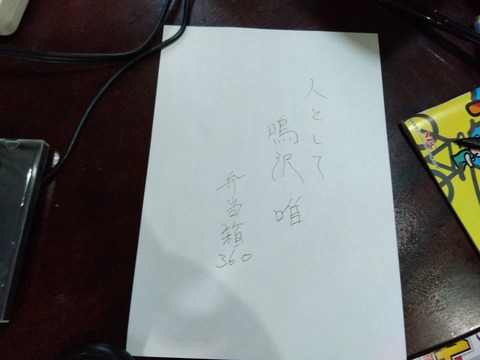 人として
鳴沢 唯
弁当箱
360